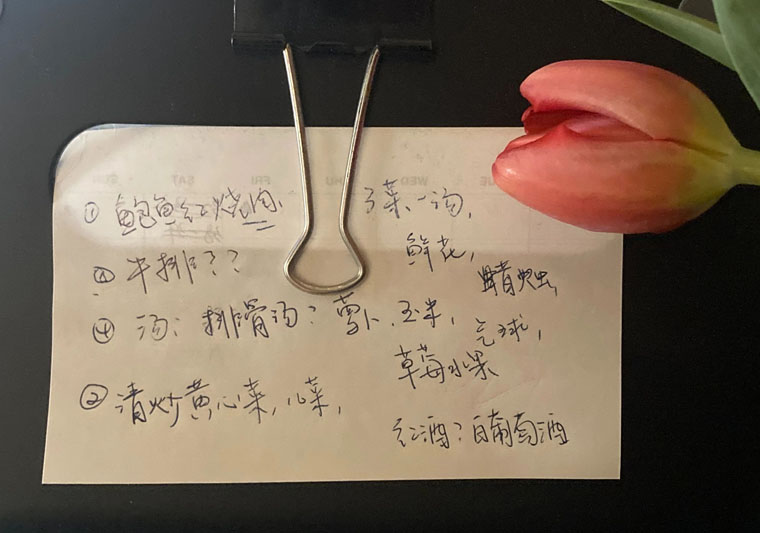 ① 鲍鱼红烧肉 3菜一汤,
鲜花,
③ 牛排??
蜡烛,
④ 汤: 排骨汤? 萝卜, 玉米,
气球,
草莓水果
② 清炒黄心菜, 儿菜,
红酒? 白葡萄酒